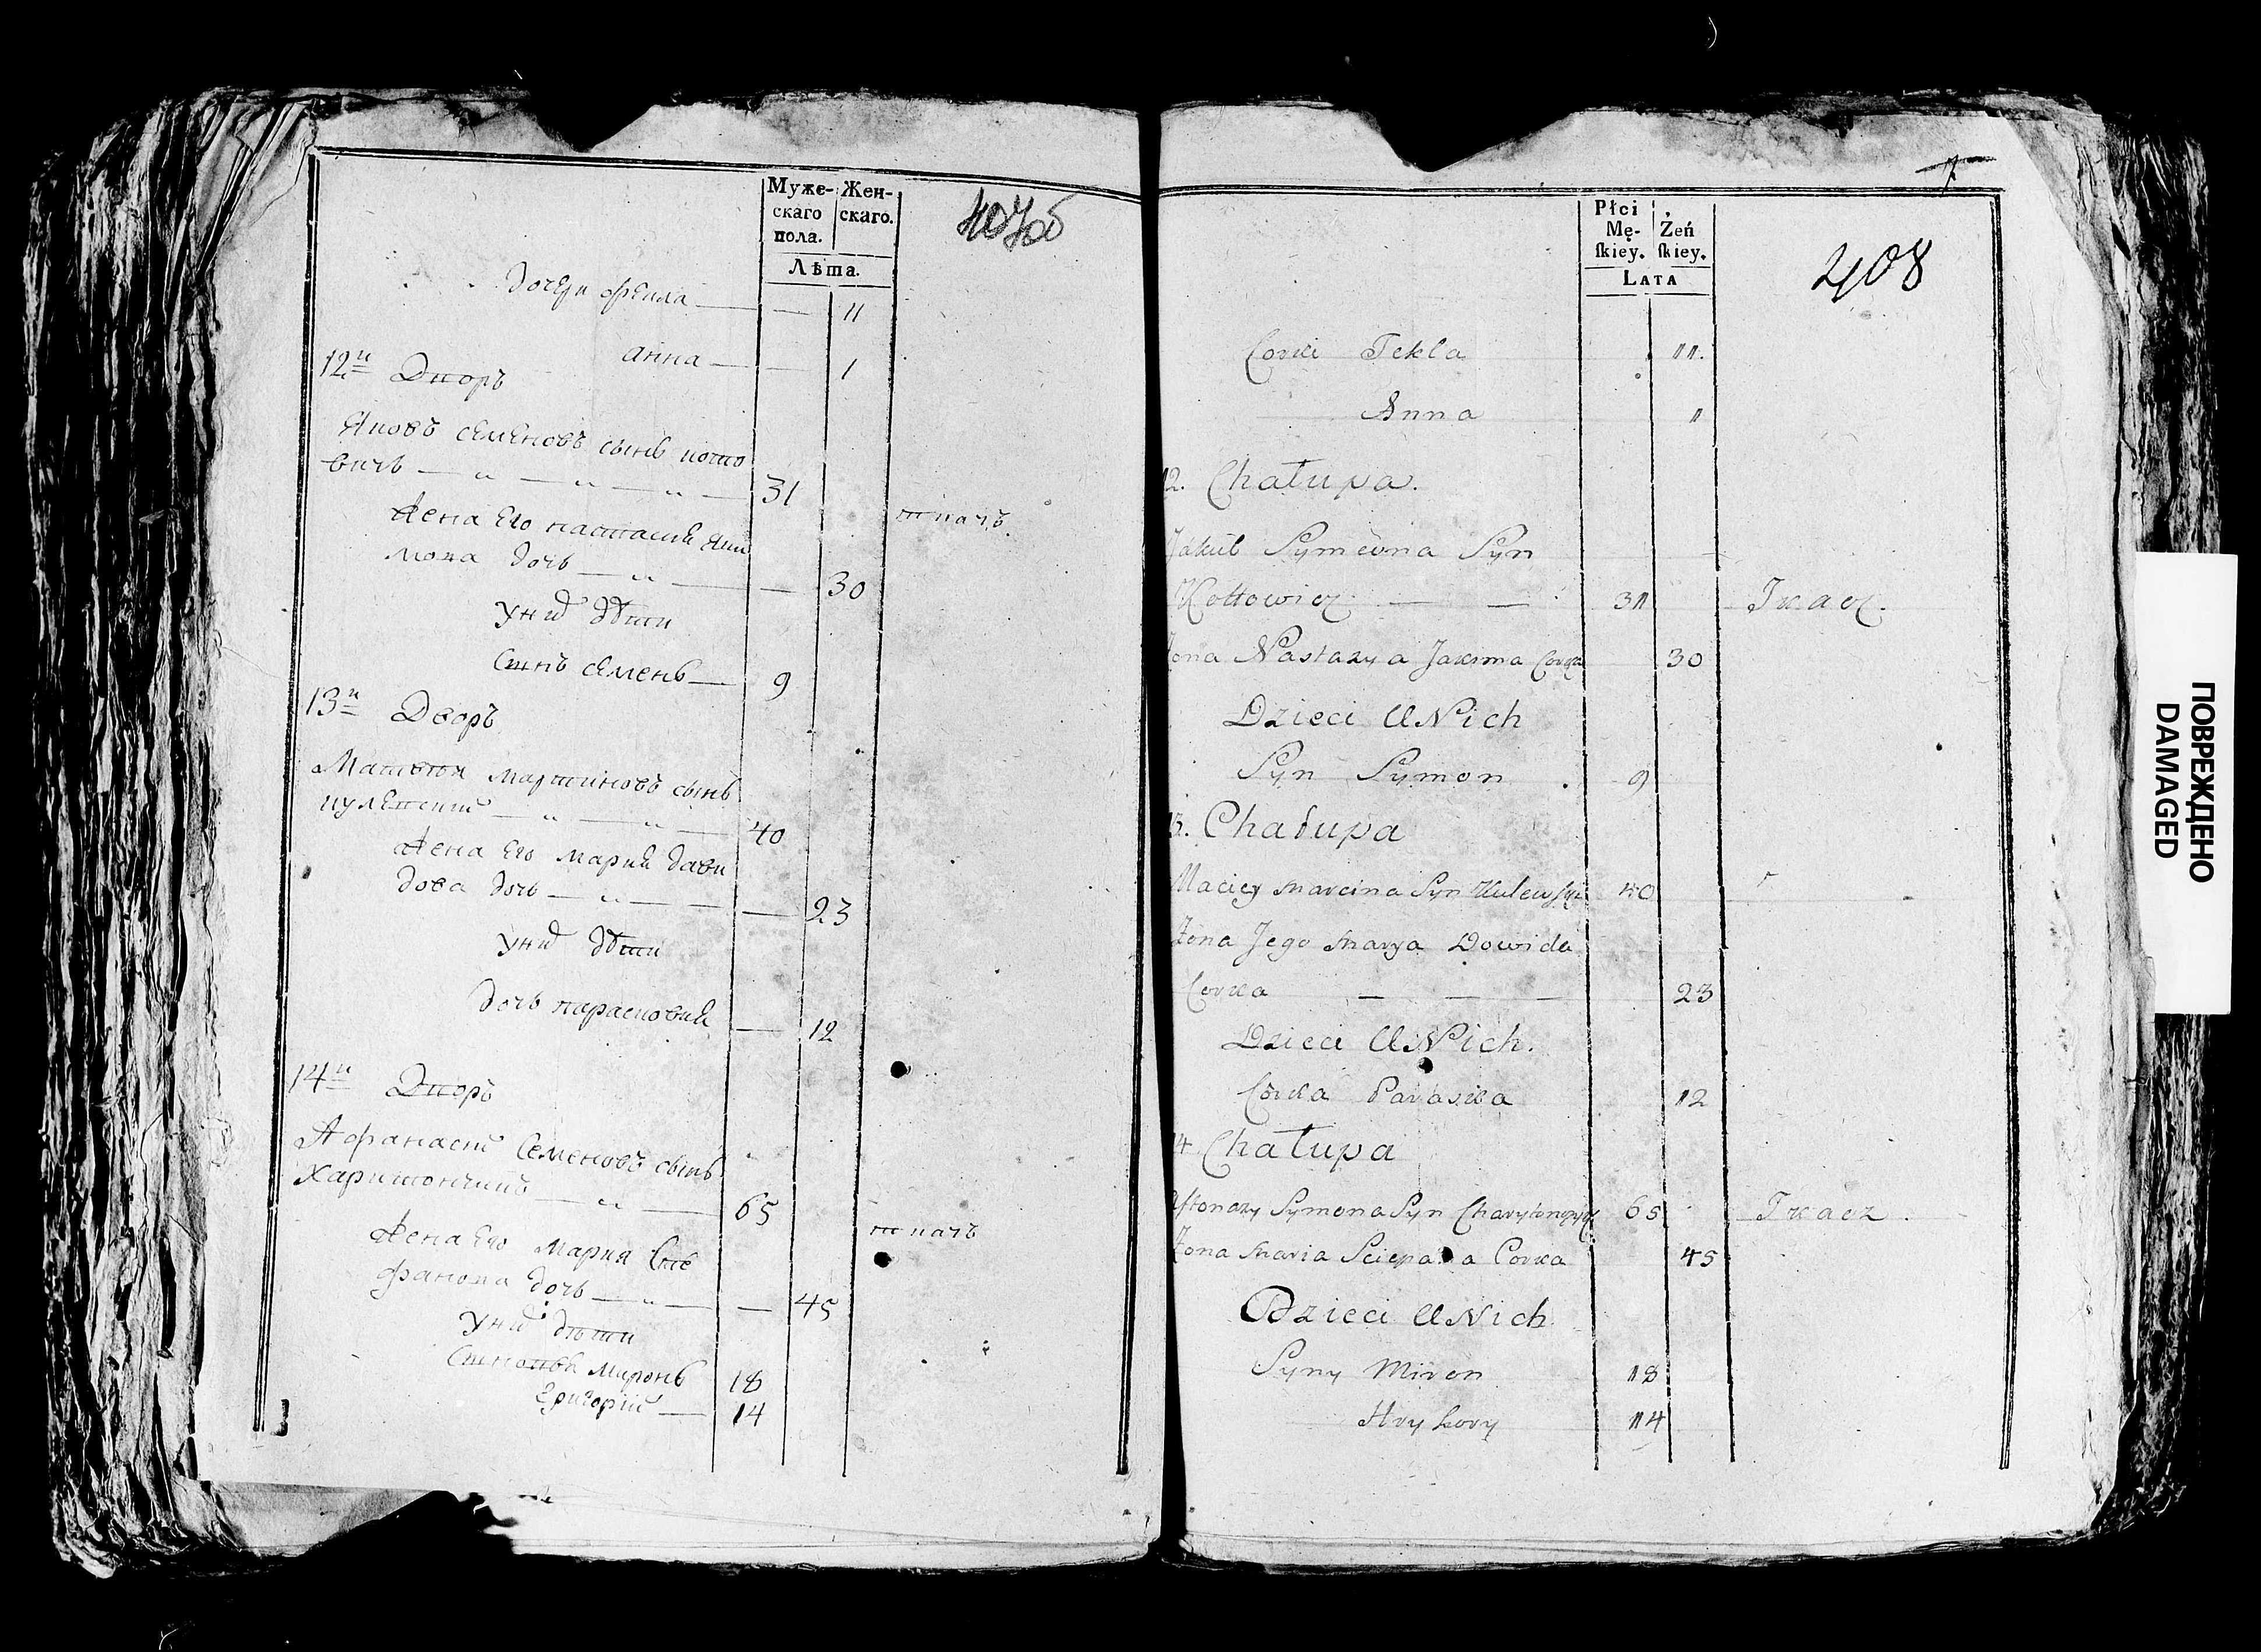 Муже-
скаго
пола.
Жен-
скаго.
Лѣта.
407об
Дочери Фекла — — 11
анна — — 1
12й Дворъ
Яковъ Семеновъ сынъ котто
вичъ — „ — „ — „ — 31
ткачъ
Жена Его настасия Яки
мова дочь — „ — — 30
У них дѣти
Сынъ Семенъ — 9
13й Дворъ
Матвей мартиновъ сынъ
кулевский — „ — „ — 40
Жена Его мария дави
дова дочь — „ — — — 23
У них дѣти
Дочь парасковия — 12
14й Дворъ
Афанасий Семеновъ сынъ
Харитончикъ — „ — 65
ткачъ
Жена Его Мария Сте
фанова дочь — „ — — 45
У них дѣти
Сыновья Миронъ 18
Григорий — 14
7
408
Płci
Mę-
skiey.
Żeń
skiey.
LATA
Corki Tekla 11.
Anna 1
12. Chałupa.
Jakub Symeona Syn
Kottowicz — — 31 Tkacz.
Żona Nastazya Jakima Corka 30
Dzieci U Nich
Syn Symon 9
13. Chałupa
Maciey Marcina Syn Kulewski 40
Żona Jego Marya Dowida
Corka — — — 23
Dzieci U Nich.
Corka Paraska 12
14 Chałupa
Afonazy Symona Syn Charytonczyk 65 Tkacz.
Żona Maria Sciepana Corka 45
Dzieci U Nich
Syny Miron 18
Hryhory 14
ПОВРЕЖДЕНО
DAMAGED